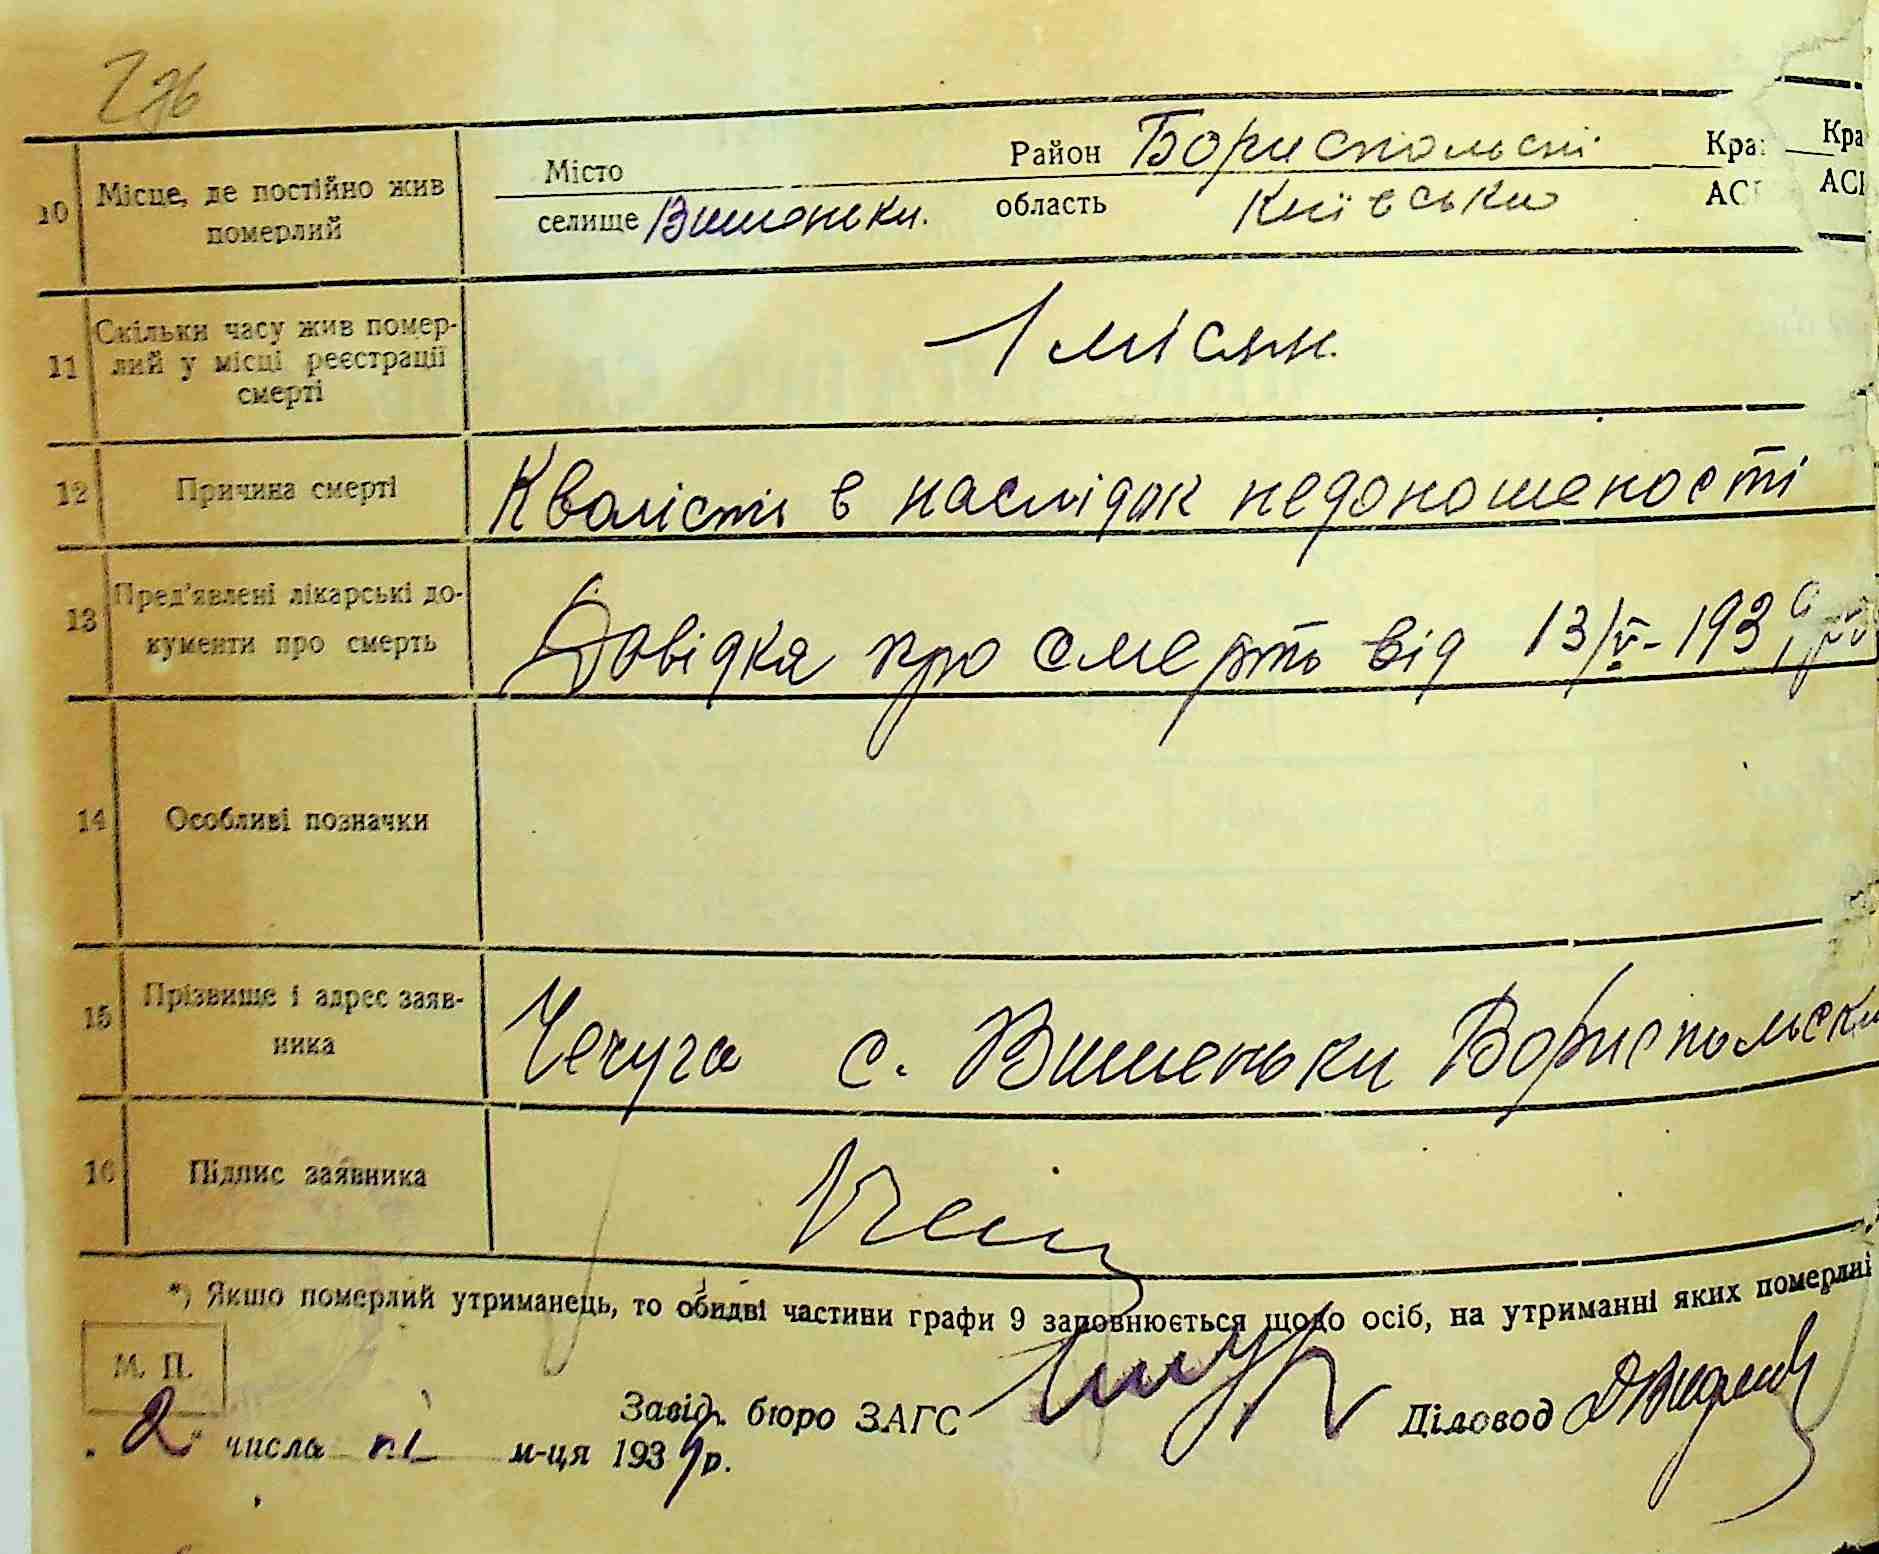 276
10 Місце, де постійно жив Місто Район Бориспольскі Кра Кра
померлий селище Вишеньки. область Київська АС АСІ
Скільки часу жив помер-
11 лий у місці реєстрації 1 місяц.
смерті
12 Причина смерті Кволість в наслідок недоношеності
13 Пред'явлені лікарські до-
кументи про смерть Довідка про смерть від 13/V-1939
14 Особливі позначки
15 Прізвище і адрес заяв- Чечуга с. Вишеньки Бориспольски
ника
16 Підпис заявника
*) Якщо померлий утриманець, то обидві частини графи 9 заповнюється щодо осіб, на утриманні яких померлий
М. П.
Завід. бюро ЗАГС Діловод
„ 2 " числа VI м-ця 1939р.